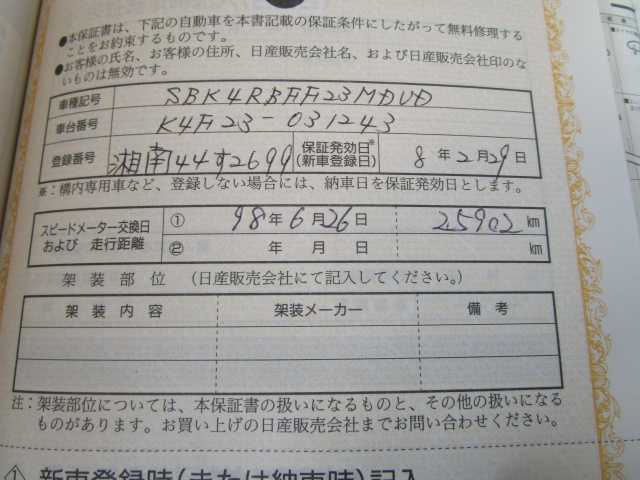 ●本保証書は、下記の自動車を本書記載の保証条件にしたがって無料修理する
ことをお約束するものです。
●お客様の氏名、お客様の住所、日産販売会社名、および日産販売会社印のな
いものは無効です。
車種記号 SBK4RBFF23MDUD
車台番号 K4F23-031243
登録番号 湘南44す2699 保証発効日※(新車登録日) 8年2月29日
※：構内専用車など、登録しない場合には、納車日を保証発効日とします。
スピードメーター交換日および 走行距離 ① 98年6月26日 25902km
② 年 月 日 km
架装部位 (日産販売会社にて記入してください。)
架装内容 架装メーカー 備考
注：架装部位については、本保証書の扱いになるものと、その他の扱いになる
ものがあります。お買い上げの日産販売会社までお問い合わせください。
① 新車登録時(または納車時)記入